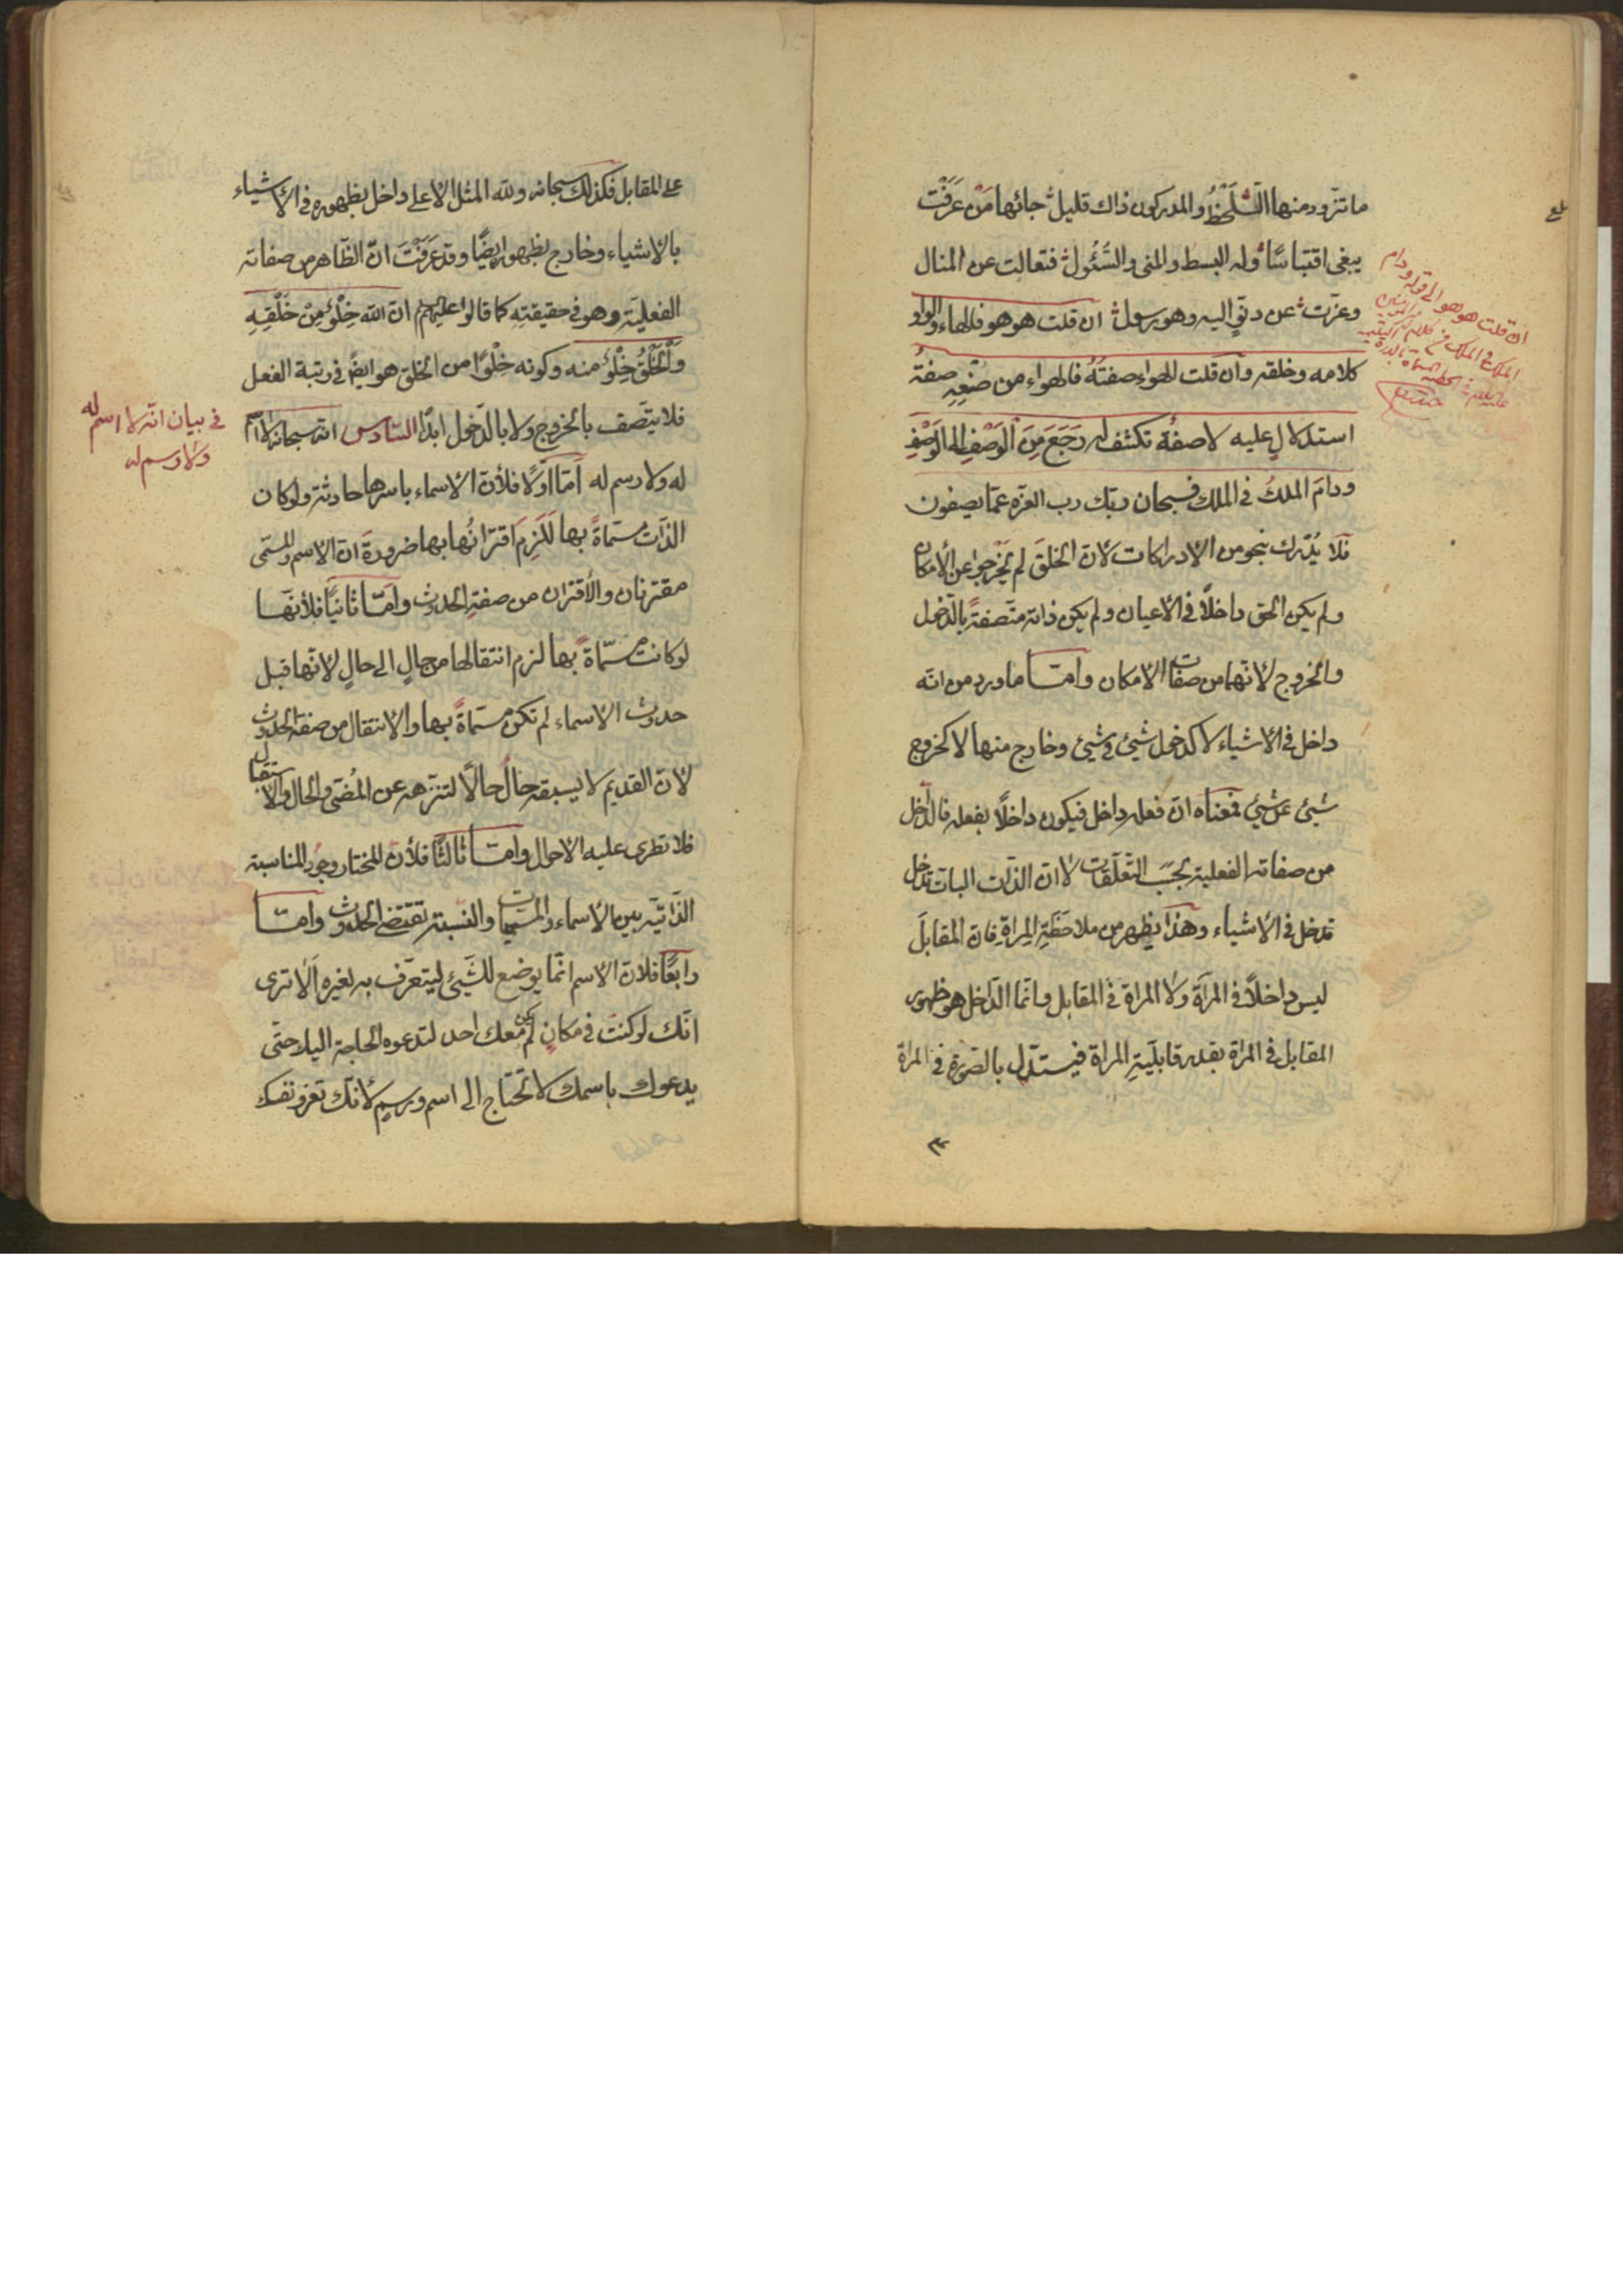 ما تزود منها اللَّحْظُ والمدركون ذاك قليل جائها مَنْ عَرَفْتَ
يبغى اقتباسًا وله البسط والمنى والسُّئُول فتعالت عن المنال
وعزّت عن دنوٍّ اليه وهو رسول ان قلت هو هو فالهاء والواو
كلامه وخلقه وان قلت الهواء صفتُهُ فالهواء من صُنْعِهِ صفةُ
استدلالٍ عليه لا صفة تكشف له رَجَعَ مِنَ الْوَصْفِ الى الْوَصْفِ
ودامَ الملكُ في الملك فسبحان ربك رب العزة عمّا يصفون
فلا يُدْرك بنحو من الإدراكات لانّ الخلقَ لم يَخْرجوا عن الأمكان
ولم يكن الحق داخلاً في الاعيان ولم يكن ذاته متّصفةً بالدّخول
والخروج لانّهما من صفات الامكان وامّا ما ورد من انّه
داخل في الاشياء لا كدخول شيئ في شيئ وخارج منها لا كخروج
شيئ عن شيئ فمعناه انّ فعله داخل فيكون داخلًا بفعله فالدّاخل
من صفاته الفعلية بحسب التّعلّقات لا ان الذّات البات تدخل
تدخل في الاشياء وهذا يظهر من ملاحَظَةِ المِراةِ فان المقابلَ
ليس داخلاً في المرآة ولا المراة في المقابل وانّما الدّاخل هو ظهور
المقابل في المرآة بقدر قابليّةِ المراة فيستدّل بالصّورة في المرآة
انّ قلت هو هو الى قوله ودام
الملك في الملك من كلام امير المؤمنين
عليه السلام في الخطبة المسماة بالدرة اليتيمية
بلغ
على المقابل فكذلك سبحانه ولله المثل الاعلى داخل بظهوره في الأشياء
بالاشياء وخارج بظهوره ايضًا وقد عَرَفْتَ انّ الظّاهر من صفاته
الفعليّة وهو في حقيقتِه كما قالوا عليهم ان الله خِلْوٌ مِنْ خَلْقِهِ
وَالْخَلْقُ خِلْوٌ منه وكونه خِلْوًا من الخلق هو ايضً في رتبة الفعل
فلا يتّصف بالخروج ولا بالدّخول ابدًا السّادس انّه سبحانه لا اسم
له ولا رسم له امّا اوّلًا فلأنّ الاسماء باسرها حادثة ولو كان
الذّات مسمّاةً بها لَلَزِمَ اقترانُها بها ضرورةَ انّ الاسم والمسمّى
مقترنان والأقتران من صفةِ الحدوث وامّا ثانيًا فلأنّها
لو كانت مسمّاة بها لزم انتقالها من حالٍ الى حالٍ لانّها قبل
حدوث الاسماء لم تكن مسمّاةً بها والانتقال من صفة الحدوث
لانّ القديم لا يسبقه حالٌ حالًا لتنزّهه عن المُضىّ والحال والاستقبال
فلا تطرى عليه الاحوال وامّا ثالثًا فلأنّ المختار وجود المناسبة
الذّاتيّة بين الاسماء والمسمّيات والنّسبة تقتضى الحدوث وامّا
رابعًا فلانّ الاسم انّما يوضع للشّيئ ليتعرّف به لغيره اَلا ترى
انّك لو كنت في مكان لم يكن معك احد لتدعوه لحاجة اليك حتّى
يدعوك باسمك لا تحتاج الى اسم ورسمٍ لأنّك تعرف نفسك
في بيان انّه لا اسم له
ولا رسم له